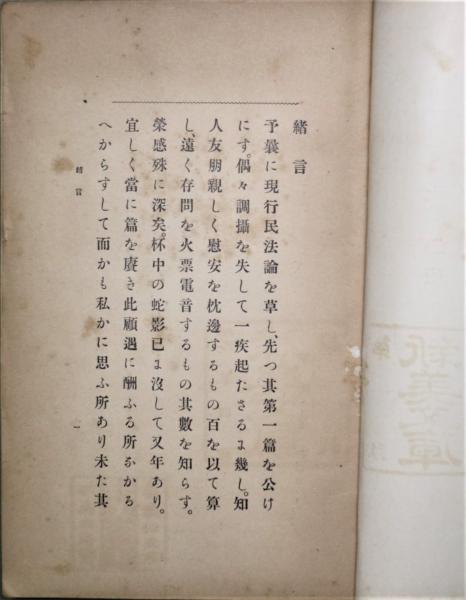 緒言
予曩に現行民法論を草し、先つ其第一篇を公け
にす。偶々調攝を失して一疾起たさるま幾し。知
人友朋親しく慰安を枕邊するもの百を以て算
し、遠く存問を火票電音するもの其數を知らす。
榮感殊に深矣。杯中の蛇影已ま沒して又年あり。
宜しく當に篇を賡き此顧遇に酬ふる所なかる
へからすして而かも私かに思ふ所あり未た其
緒言
一